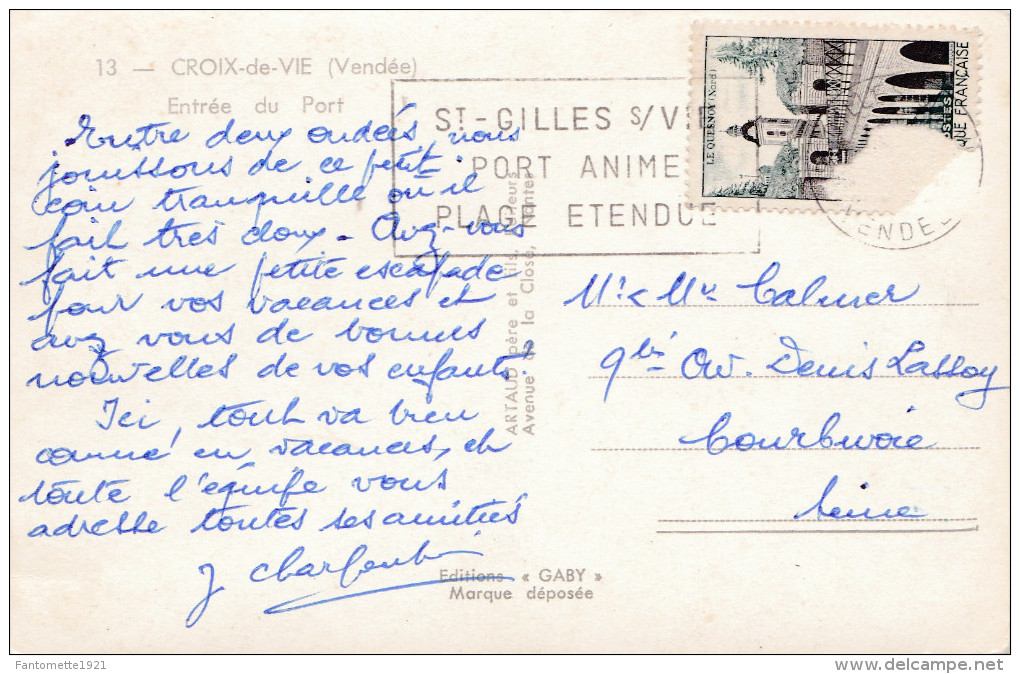 13 — CROIX-de-VIE (Vendée)
Entrée du Port
Entre deux ondées, nous
jouissons de ce petit
coin tranquille où il
fait très doux. Avez-vous
fait une petite escapade
pour vos vacances et
avez vous de bonnes
nouvelles de vos enfants?
Ici, tout va bien
comme en vacances, et
toute l'équipe vous
adresse toutes ses amitiés
J Charpentier
ST-GILLES S/VIE
PORT ANIME
PLAGE ETENDUE
LE QUESNOY (Nord)
POSTES
QUE FRANÇAISE
VENDEE
ARTAUD père et fils, éditeurs
Avenue de la Close, Nantes
Mr & Me Calmer
9 bis Av. Denis Lassoy
Courbevoie
Seine
Editions « GABY »
Marque déposée
Fantomette1921
delcampe.net